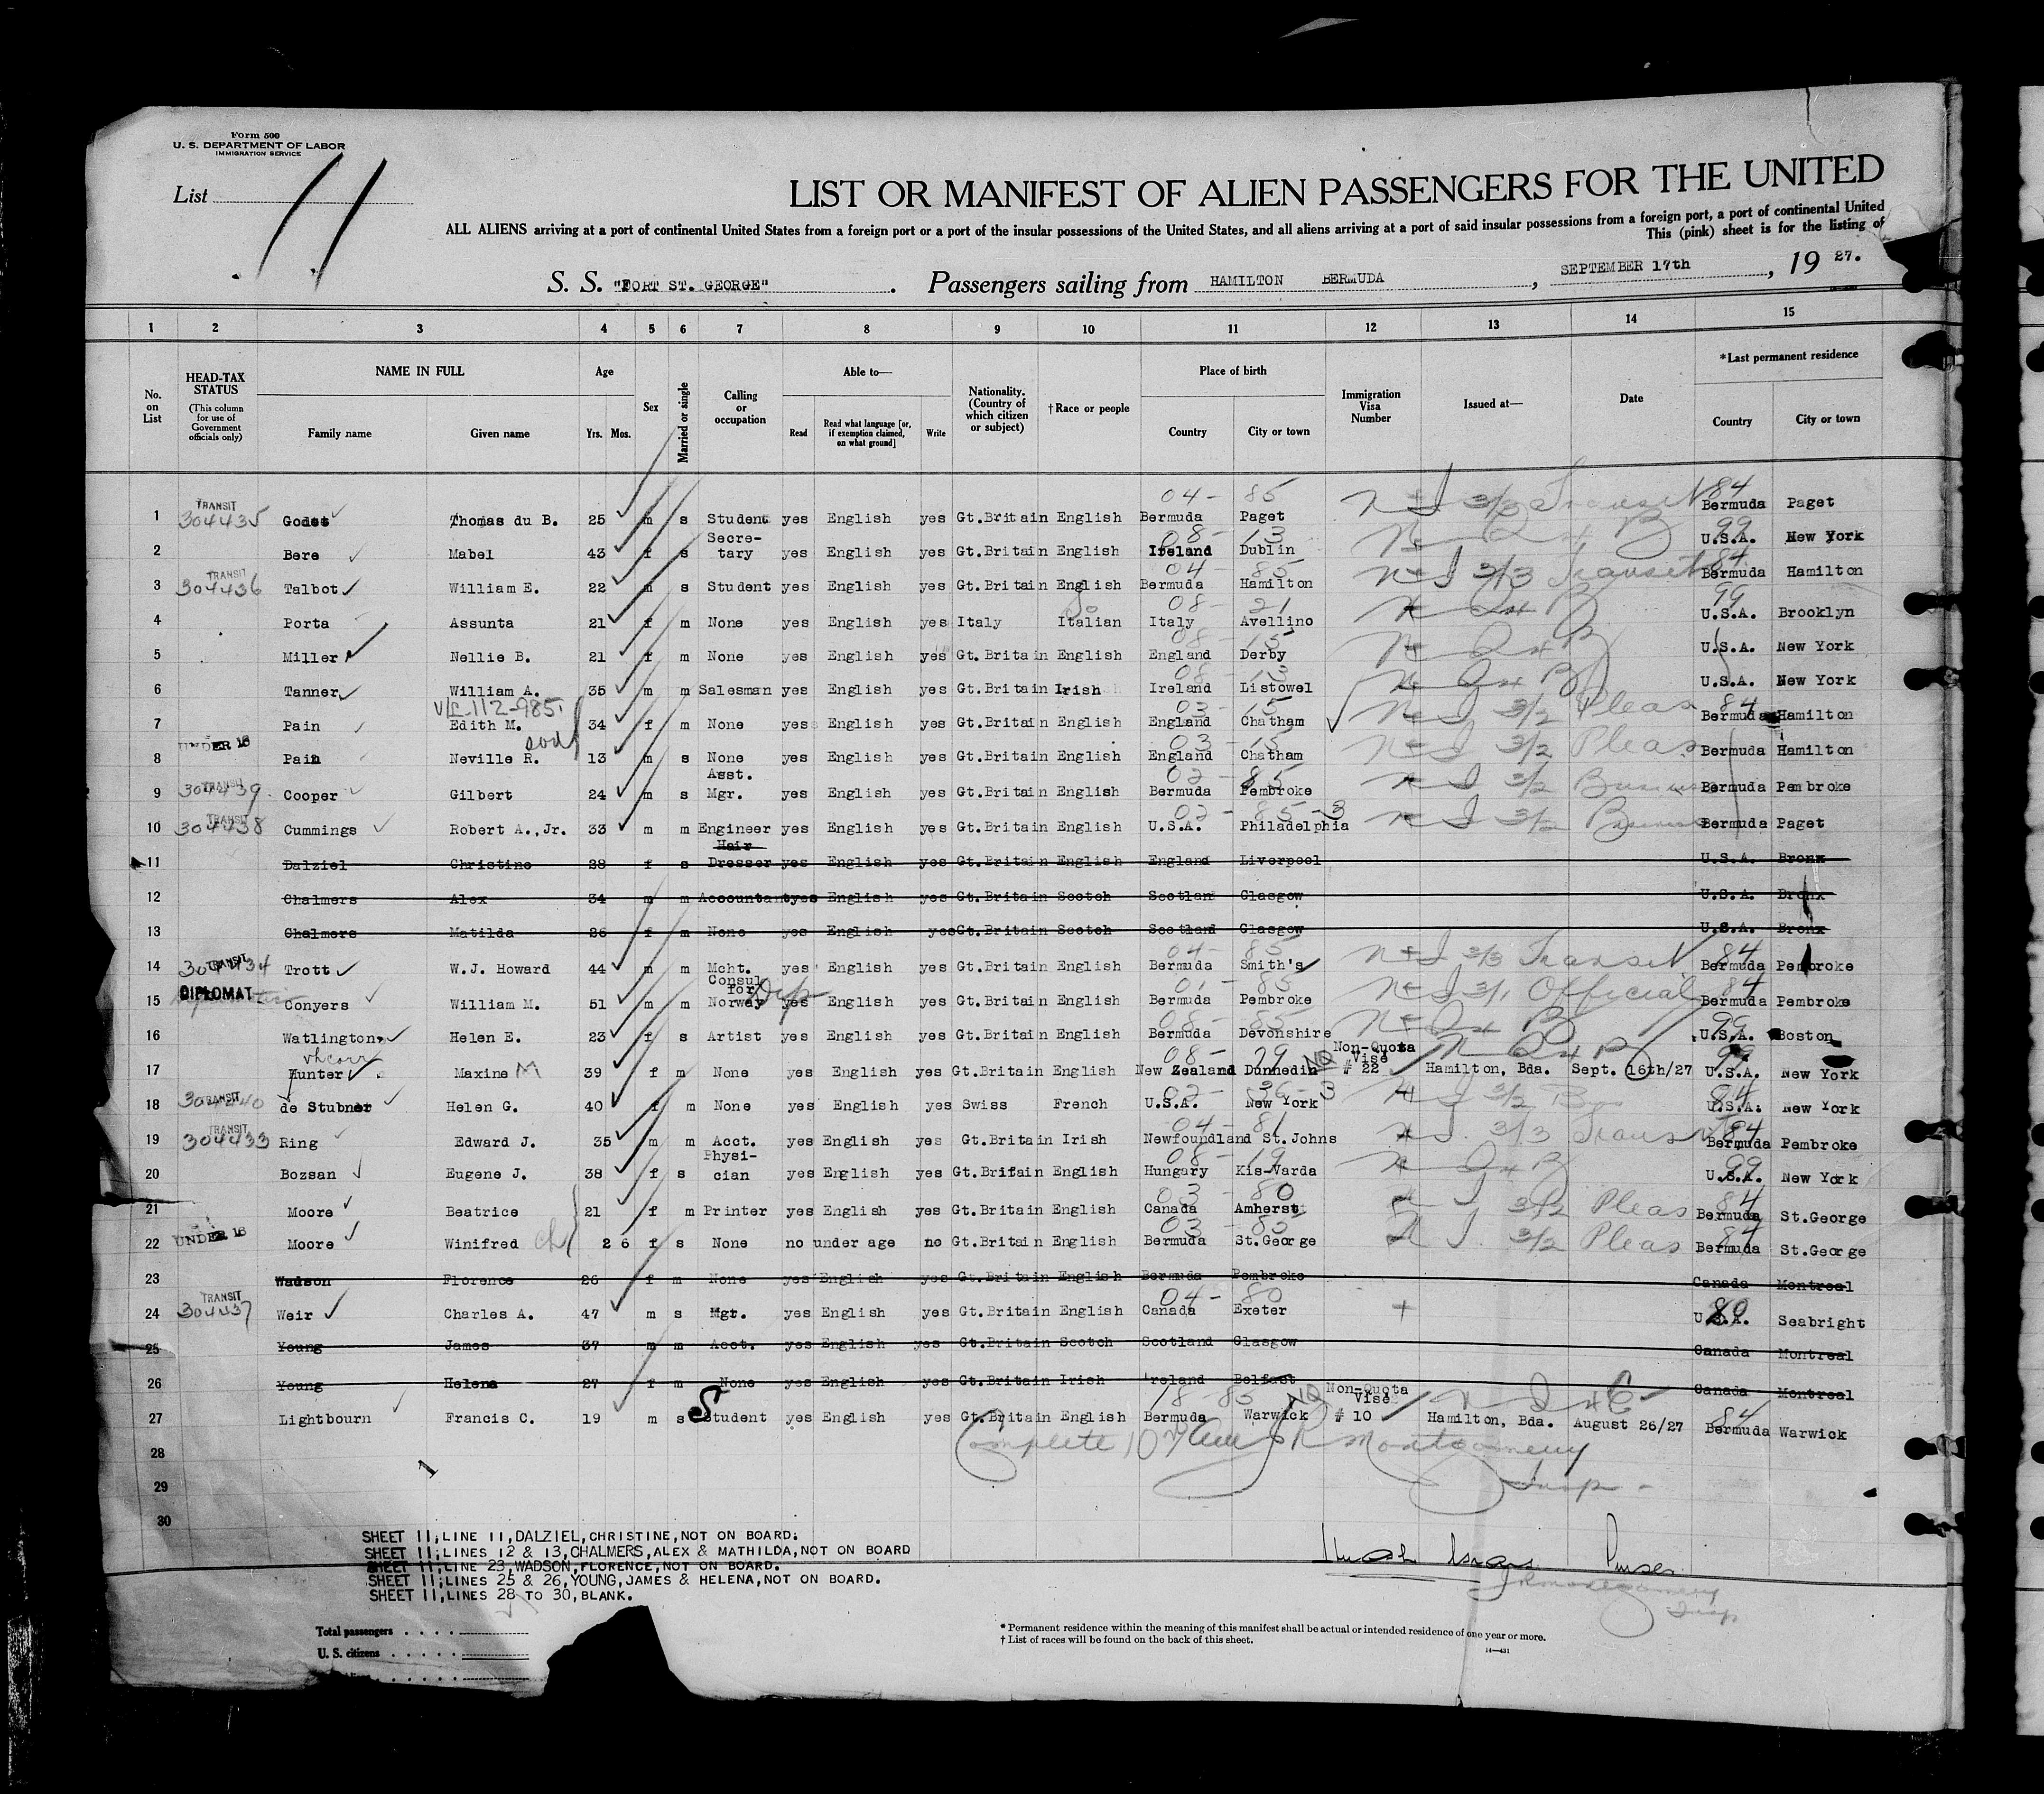 Form 500
U. S. DEPARTMENT OF LABOR
IMMIGRATION SERVICE
List 11
LIST OR MANIFEST OF ALIEN PASSENGERS FOR THE UNITED
ALL ALIENS arriving at a port of continental United States from a foreign port or a port of the insular possessions of the United States, and all aliens arriving at a port of said insular possessions from a foreign port, a port of continental United
This (pink) sheet is for the listing of
S. S. "FORT ST. GEORGE" . Passengers sailing from HAMILTON BERMUDA , SEPTEMBER 17th , 19 27.
1 2 3 4 5 6 7 8 9 10 11 12 13 14 15
No. on List
HEAD-TAX STATUS (This column for use of Government officials only)
NAME IN FULL Family name Given name
Age Yrs. Mos.
Sex
Married or single
Calling or occupation
Able to— Read Read what language [or, if exemption claimed, on what ground] Write
Nationality. (Country of which citizen or subject)
† Race or people
Place of birth Country City or town
Immigration Visa Number
Issued at—
Date
*Last permanent residence Country City or town
04- 85 84
1 TRANSIT 304435 Godet Thomas du B. 25 m s Student yes English yes Gt.Britain English Bermuda Paget N I 3/3 Transit Bermuda Paget
08- 13 99
2 Bere Mabel 43 f s Secretary yes English yes Gt.Britain English Ireland Dublin U.S.A. New York
04- 85 84
3 TRANSIT 304436 Talbot William E. 22 m s Student yes English yes Gt.Britain English Bermuda Hamilton N I 3/3 Transit Bermuda Hamilton
08- 21 99
4 Porta Assunta 21 f m None yes English yes Italy Italian Italy Avellino U.S.A. Brooklyn
08- 15
5 Miller Nellie B. 21 f m None yes English yes Gt.Britain English England Derby U.S.A. New York
08- 13
6 Tanner William A. 35 m m Salesman yes English yes Gt.Britain Irish Ireland Listowel U.S.A. New York
V/L-112-985
03- 15 84
7 Pain Edith M. 34 f m None yes English yes Gt.Britain English England Chatham N I 3/2 Pleas Bermuda Hamilton
son
03- 15
8 UNDER 16 Pain Neville R. 13 m s None yes English yes Gt.Britain English England Chatham N I 3/2 Pleas Bermuda Hamilton
02- 85
9 TRANSIT 304439 Cooper Gilbert 24 m s Asst. Mgr. yes English yes Gt.Britain English Bermuda Pembroke N I 3/2 Business Bermuda Pembroke
02- 85-3
10 TRANSIT 304438 Cummings Robert A.,Jr. 33 m m Engineer yes English yes Gt.Britain English U.S.A. Philadelphia N I 3/2 Business Bermuda Paget
11 Dalziel Christine 28 f s Hair Dresser yes English yes Gt.Britain English England Liverpool U.S.A. Bronx
12 Chalmers Alex 34 m m Accountant yes English yes Gt.Britain Scotch Scotland Glasgow U.S.A. Bronx
13 Chalmers Matilda 26 f m None yes English yes Gt.Britain Scotch Scotland Glasgow U.S.A. Bronx
04- 85 84
14 TRANSIT 304434 Trott W.J. Howard 44 m m Mcht. yes English yes Gt.Britain English Bermuda Smith's N I 3/3 Transit Bermuda Pembroke
01- 85 84
15 DIPLOMAT Conyers William M. 51 m m Consul for Norway Dip yes English yes Gt.Britain English Bermuda Pembroke N I 3/1 Official Bermuda Pembroke
08- 85 99
16 Watlington Helen E. 23 f s Artist yes English yes Gt.Britain English Bermuda Devonshire U.S.A. Boston
08- 29 99
17 Hunter Maxine M 39 f m None yes English yes Gt.Britain English New Zealand Dunnedin NQ Non-Quota Vise # 22 Hamilton, Bda. Sept. 16th/27 U.S.A. New York
02- 36-3 84
18 TRANSIT 304440 de Stubner Helen G. 40 f m None yes English yes Swiss French U.S.A. New York N I 3/2 U.S.A. New York
04- 81 84
19 TRANSIT 304433 Ring Edward J. 35 m m Acct. yes English yes Gt.Britain Irish Newfoundland St.Johns N I 3/3 Transit Bermuda Pembroke
08- 19 99
20 Bozsan Eugene J. 38 f s Physician yes English yes Gt.Britain English Hungary Kis-Varda U.S.A. New York
03- 80 84
21 Moore Beatrice 21 f m Printer yes English yes Gt.Britain English Canada Amherst N I 3/2 Pleas Bermuda St.George
03- 85 84
22 UNDER 16 Moore Winifred ch 2 6 f s None no under age no Gt.Britain English Bermuda St.George N I 3/2 Pleas Bermuda St.George
23 Wadson Florence 26 f m None yes English yes Gt.Britain English Bermuda Pembroke Canada Montreal
04- 80 80
24 TRANSIT 304437 Weir Charles A. 47 m s Mgr. yes English yes Gt.Britain English Canada Exeter U.S.A. Seabright
25 Young James 37 m m Acct. yes English yes Gt.Britain Scotch Scotland Glasgow Canada Montreal
26 Young Helena 27 f m None yes English yes Gt.Britain Irish Ireland Belfast Canada Montreal
18-85 84
27 Lightbourn Francis C. 19 m s Student yes English yes Gt.Britain English Bermuda Warwick NQ Non-Quota Vise # 10 Hamilton, Bda. August 26/27 Bermuda Warwick
28 Complete Montgomery
29 Insp.
30
SHEET 11,LINE 11,DALZIEL,CHRISTINE,NOT ON BOARD.
SHEET 11,LINES 12 & 13,CHALMERS,ALEX & MATHILDA,NOT ON BOARD
SHEET 11,LINE 23,WADSON,FLORENCE,NOT ON BOARD.
SHEET 11,LINES 25 & 26,YOUNG,JAMES & HELENA,NOT ON BOARD.
SHEET 11,LINES 28 TO 30,BLANK.
Purser
Montgomery
Insp
Total passengers
U. S. citizens
* Permanent residence within the meaning of this manifest shall be actual or intended residence of one year or more.
† List of races will be found on the back of this sheet.
14—431